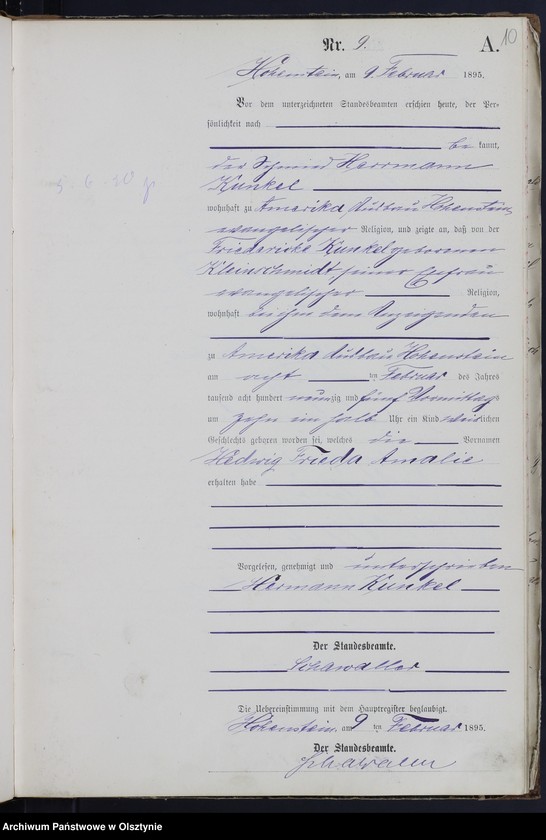 10
Nr. 9. A.
Hohenstein, am 9 Februar 1895.
Vor dem unterzeichneten Standesbeamten erschien heute, der Per-
sönlichkeit nach
be kannt,
der Schmied Herrmann
Kunkel
wohnhaft zu Amerika Ausbau Hohenstein,
evangelischer Religion, und zeigte an, daß von der
Friedericke Kunkel geborenen
Kleinschmidt, seiner Ehefrau
evangelischer Religion,
wohnhaft bei ihm dem Anzeigenden
zu Amerika Ausbau Hohenstein
am acht ten Februar des Jahres
tausend acht hundert neunzig und fünf Vormittags
um zehn ein halb Uhr ein Kind weiblichen
Geschlechts geboren worden sei, welches die Vornamen
Hedwig Frieda Amalie
erhalten habe
Vorgelesen, genehmigt und unterschrieben
Hermann Kunkel
Der Standesbeamte.
Schawaller
Die Uebereinstimmung mit dem Hauptregister beglaubigt.
Hohenstein, am 9 ten Februar 1895.
Der Standesbeamte.
Schawaller
Archiwum Państwowe w Olsztynie